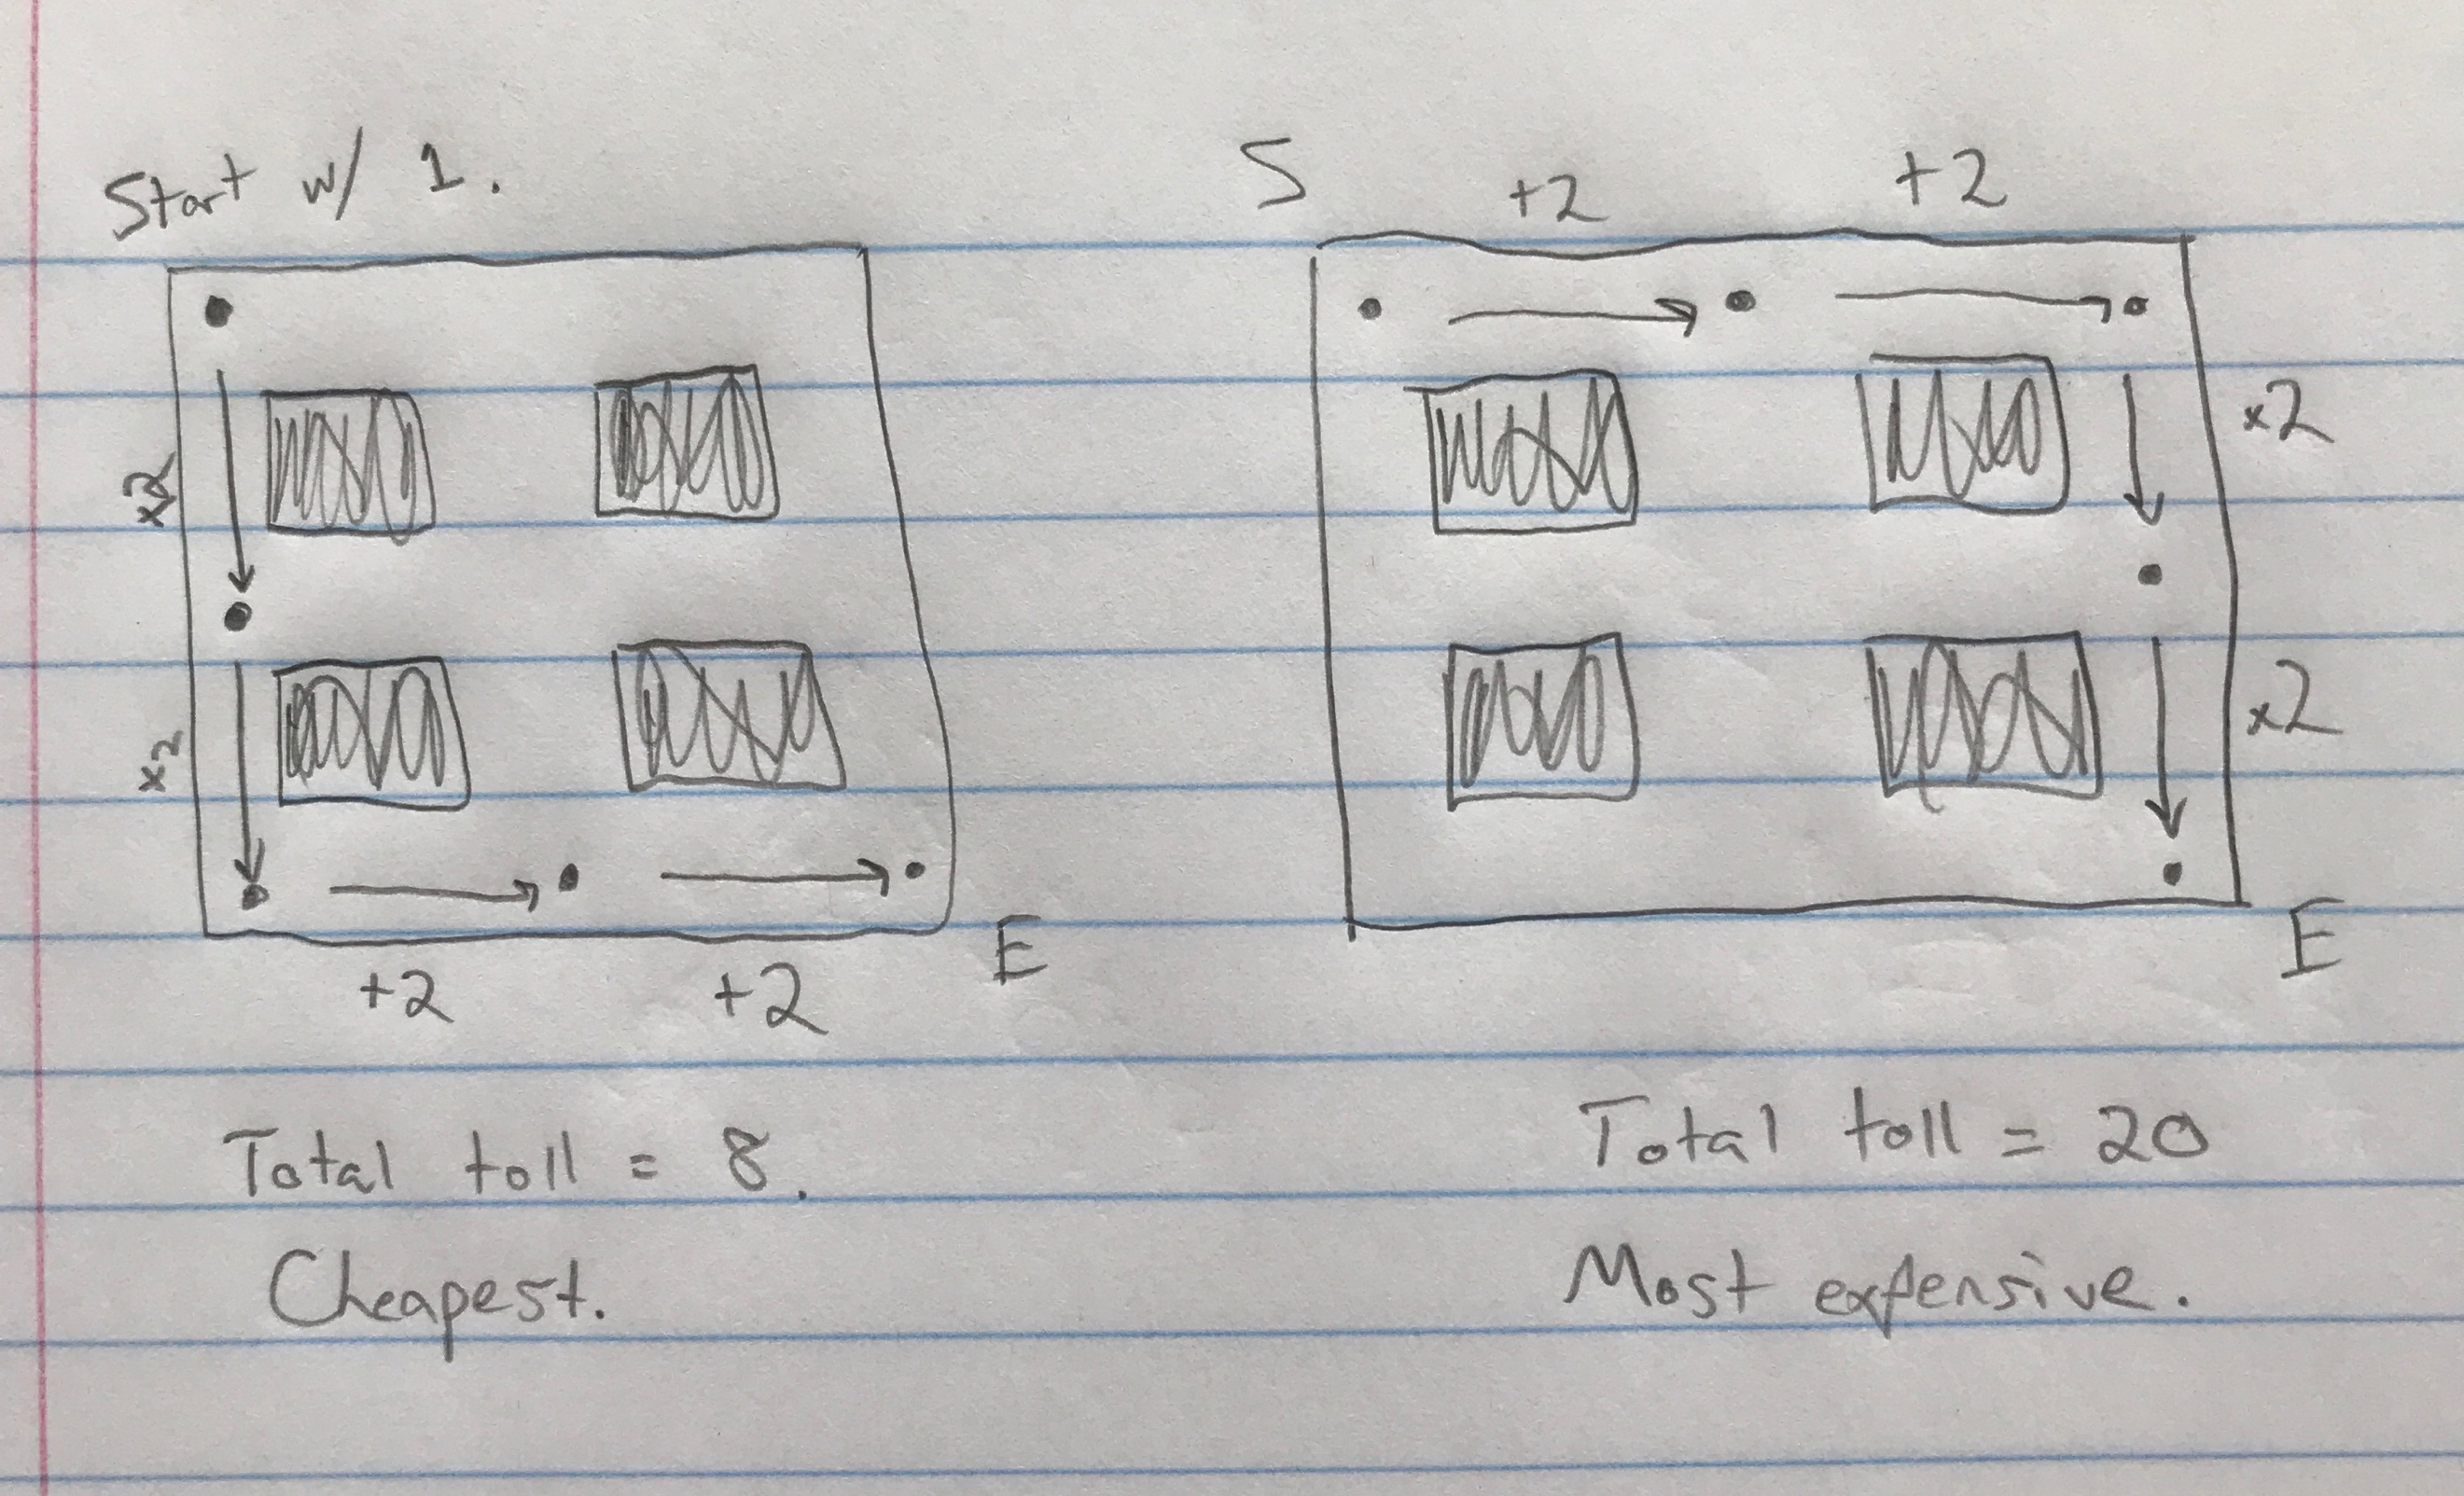 Start w/ 1.
x2
x2
+2 +2
E
Total toll = 8.
Cheapest.
S
+2 +2
x2
x2
E
Total toll = 20
Most expensive.